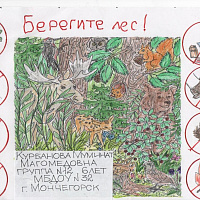 Берегите лес!
Курбанова Муминат
Магомедовна
группа №12 6лет
МБДОУ №32
г. Мончегорск